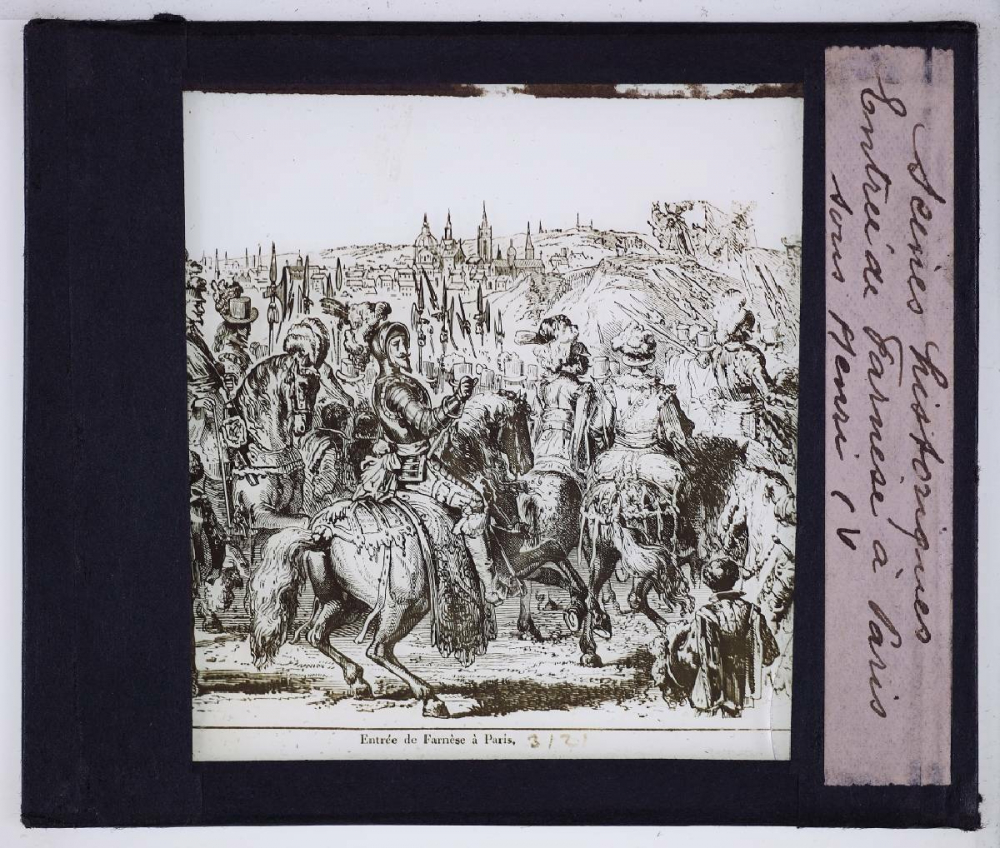 Entrée de Farnèse à Paris.
3121
Scènes historiques
Entrée de Farnese à Paris
sous Henri IV